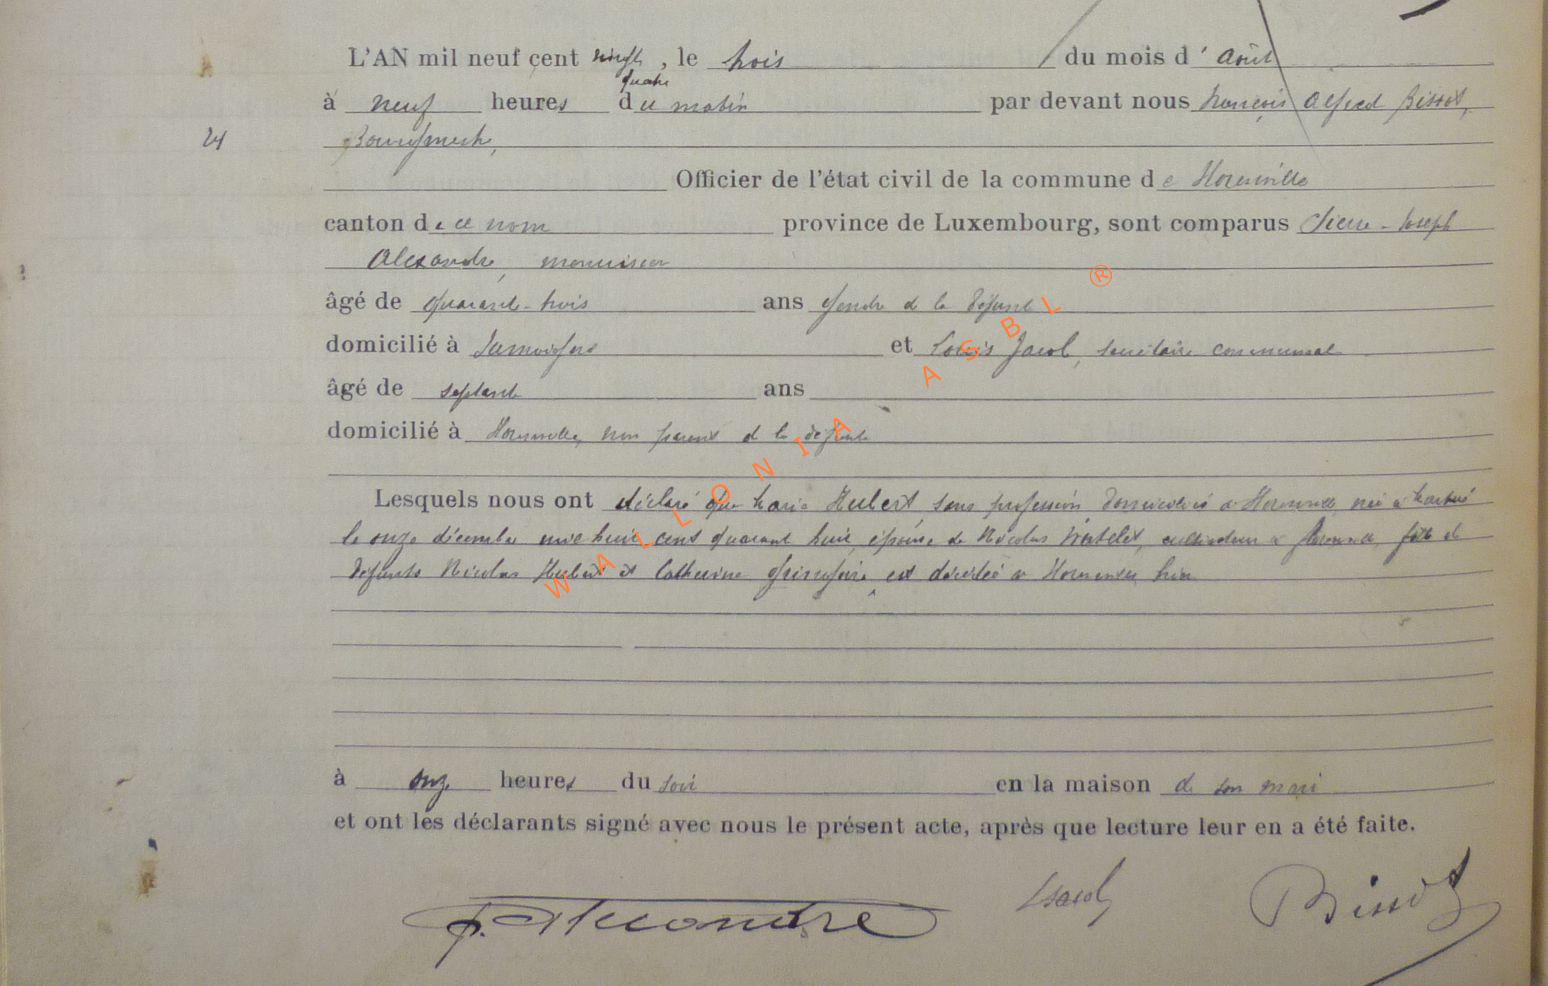 L'AN mil neuf cent vingt quatre, le trois du mois d'août
à neuf heures du matin par devant nous François Alfred Bissot,
24 Bourgmestre,
Officier de l'état civil de la commune de Florenville
canton de ce nom province de Luxembourg, sont comparus Pierre-Joseph
Alexandre, menuisier
âgé de quarante-trois ans gendre de la défunte
domicilié à Jamoigne et Louis Jacob, secrétaire communal
âgé de septante ans
domicilié à Florenville, non parent de la défunte
Lesquels nous ont déclaré que Marie Hubert, sans profession domiciliée à Florenville née à
le onze décembre mil huit cent quarante huit, épouse de Nicolas Watelet, cultivateur à Florenville, fille de
défunts Nicolas Hubert et Catherine est décédée à Florenville hier
à onze heures du soir en la maison de son mari
et ont les déclarants signé avec nous le présent acte, après que lecture leur en a été faite.
P. Alexandre LJacob Bissot
WALLONIA ASBL ®